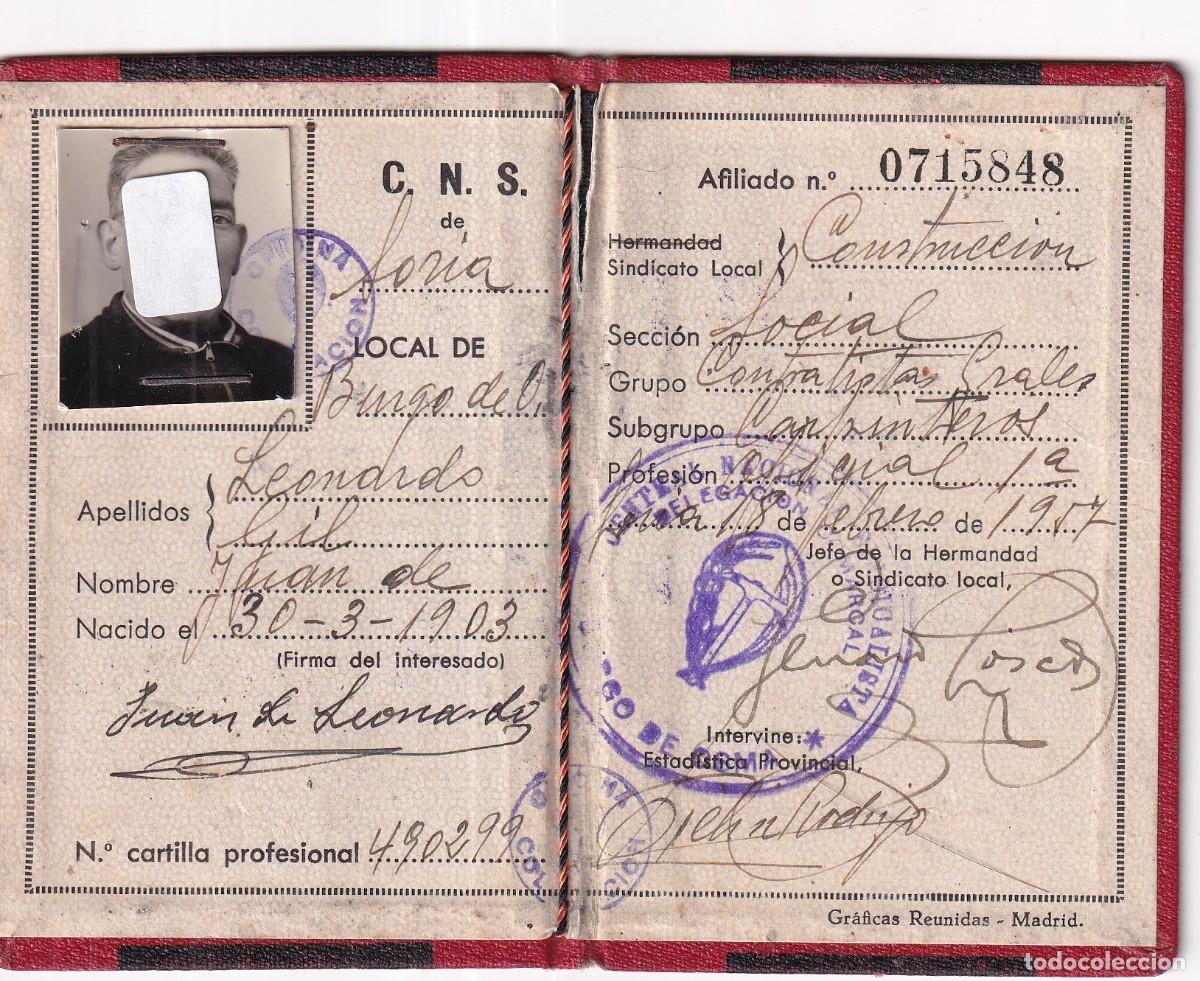 C. N. S.
de
Soria
LOCAL DE
Burgo de O.
Apellidos
Leonardo
Gil
Nombre Juan de
Nacido el 30-3-1903
(Firma del interesado)
Juan de Leonardo
N.º cartilla profesional 490299
Afiliado n.º 0715848
Hermandad
Sindicato Local
Construccion
Sección Social
Grupo Contratistas Grales
Subgrupo Carpinteros
Profesión Oficial 1ª
Soria 18 de febrero de 1957
Jefe de la Hermandad
o Sindicato local,
Intervine:
Estadística Provincial,
DELEGACION COMARCAL
Gráficas Reunidas - Madrid.
todocoleccion